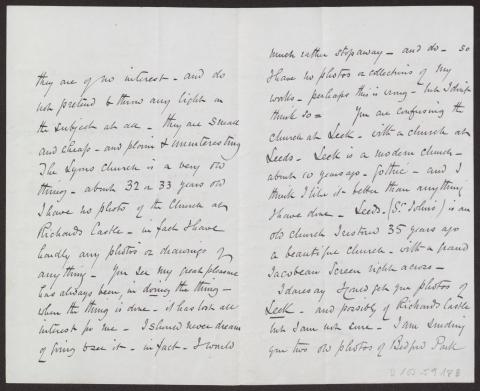 they are of no interest - and do
not pretend to throw any light on
the subject at all - They are small
and cheap - and plain & uninteresting
The Lyons church is a very old
thing - about 32 or 33 years old
I have no photo of the Church at
Richards Castle - in fact I have
hardly any photos or drawings of
anything - You see my great pleasure
has always been, in doing the thing -
when the thing is done - it has lost all
interest for me - I should never dream
of going to see it - in fact - I would
much rather stop away - and do - so
I have no photos or collections of my
works - perhaps this is wrong - but I don't
think so = You are confusing the
church at Leek - with a church at
Leeds - Leek is a modern church -
about 10 years ago - Gothic - and I
think I like it better than anything
I have done - Leeds - (St. John's) is an
old church I restored 35 years ago
a beautiful church - with a grand
Jacobean Screen right across -
I daresay I could get you photos of
Leek - and possibly of Richards Castle
but I am not sure - I am sending
you two old photos of Bedford Park